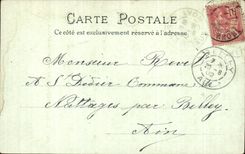 CARTE POSTALE
Ce côté est exclusivement réservé à l'adresse
Monsieur Revel
A St Didier Commune
Nattages par Belley
Ain